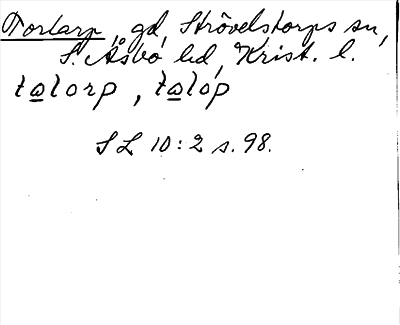 Torlarp, gd, Strövelstorps sn,
S. Åsbo hd, Krist. l.
talorp, talop
SL 10:2 s. 98.